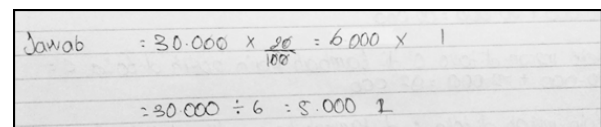 Jawab : 30.000 × 20/100 = 6000 × 1
= 30 000 ÷ 6 : 5.000 1